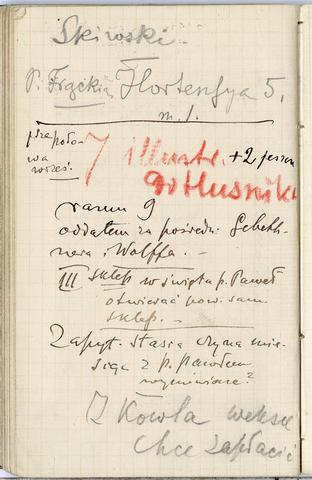 Skirwski.
P. Frąckie Hortensya 5.
m. 1.
prza poło-
wa
wrześ.
7 illustr. +2 jeszcze
do Tłusnika
razem 9
oddałem za pośredn. Gebeth-
nera i Wolffa. -
III sklep w święta p. Paweł
otwierać pow. sam
sklep. -
Zapyt. Stasia czy na mie-
siąc z p. Pawłem
wymówione?
Z Kowla weksle
chce zapłacić